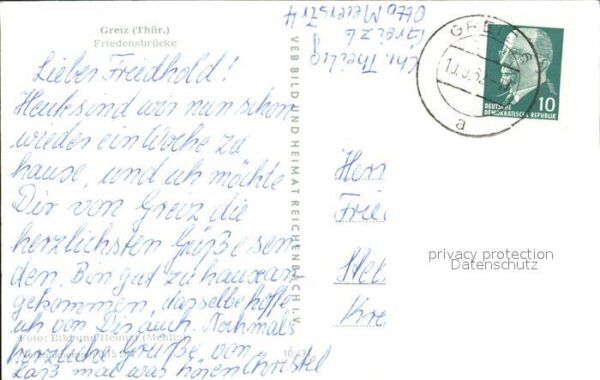 Greiz (Thür.)
Friedensbrücke
Lieber Friedhold!
Heute sind wir nun schon
wieder ein Woche zu
hause, und ich möchte
Dir von Greiz die
herzlichsten Grüße sen
den. Bin gut zu hause an
gekommen, dasselbe hoffe
ich von Dir auch. Nochmals
herzliche Grüße von
Laß mal was hören Christel
Foto: Bild und Heimat
VEB BILD UND HEIMAT REICHENBACH I. V.
Chr. Theilig
Greiz
Otto Meierstr 4
GREIZ
a
10
DEUTSCHE
DEMOKRATISCHE REPUBLIK
Herr
Frie
Hel
Kre
privacy protection
Datenschutz